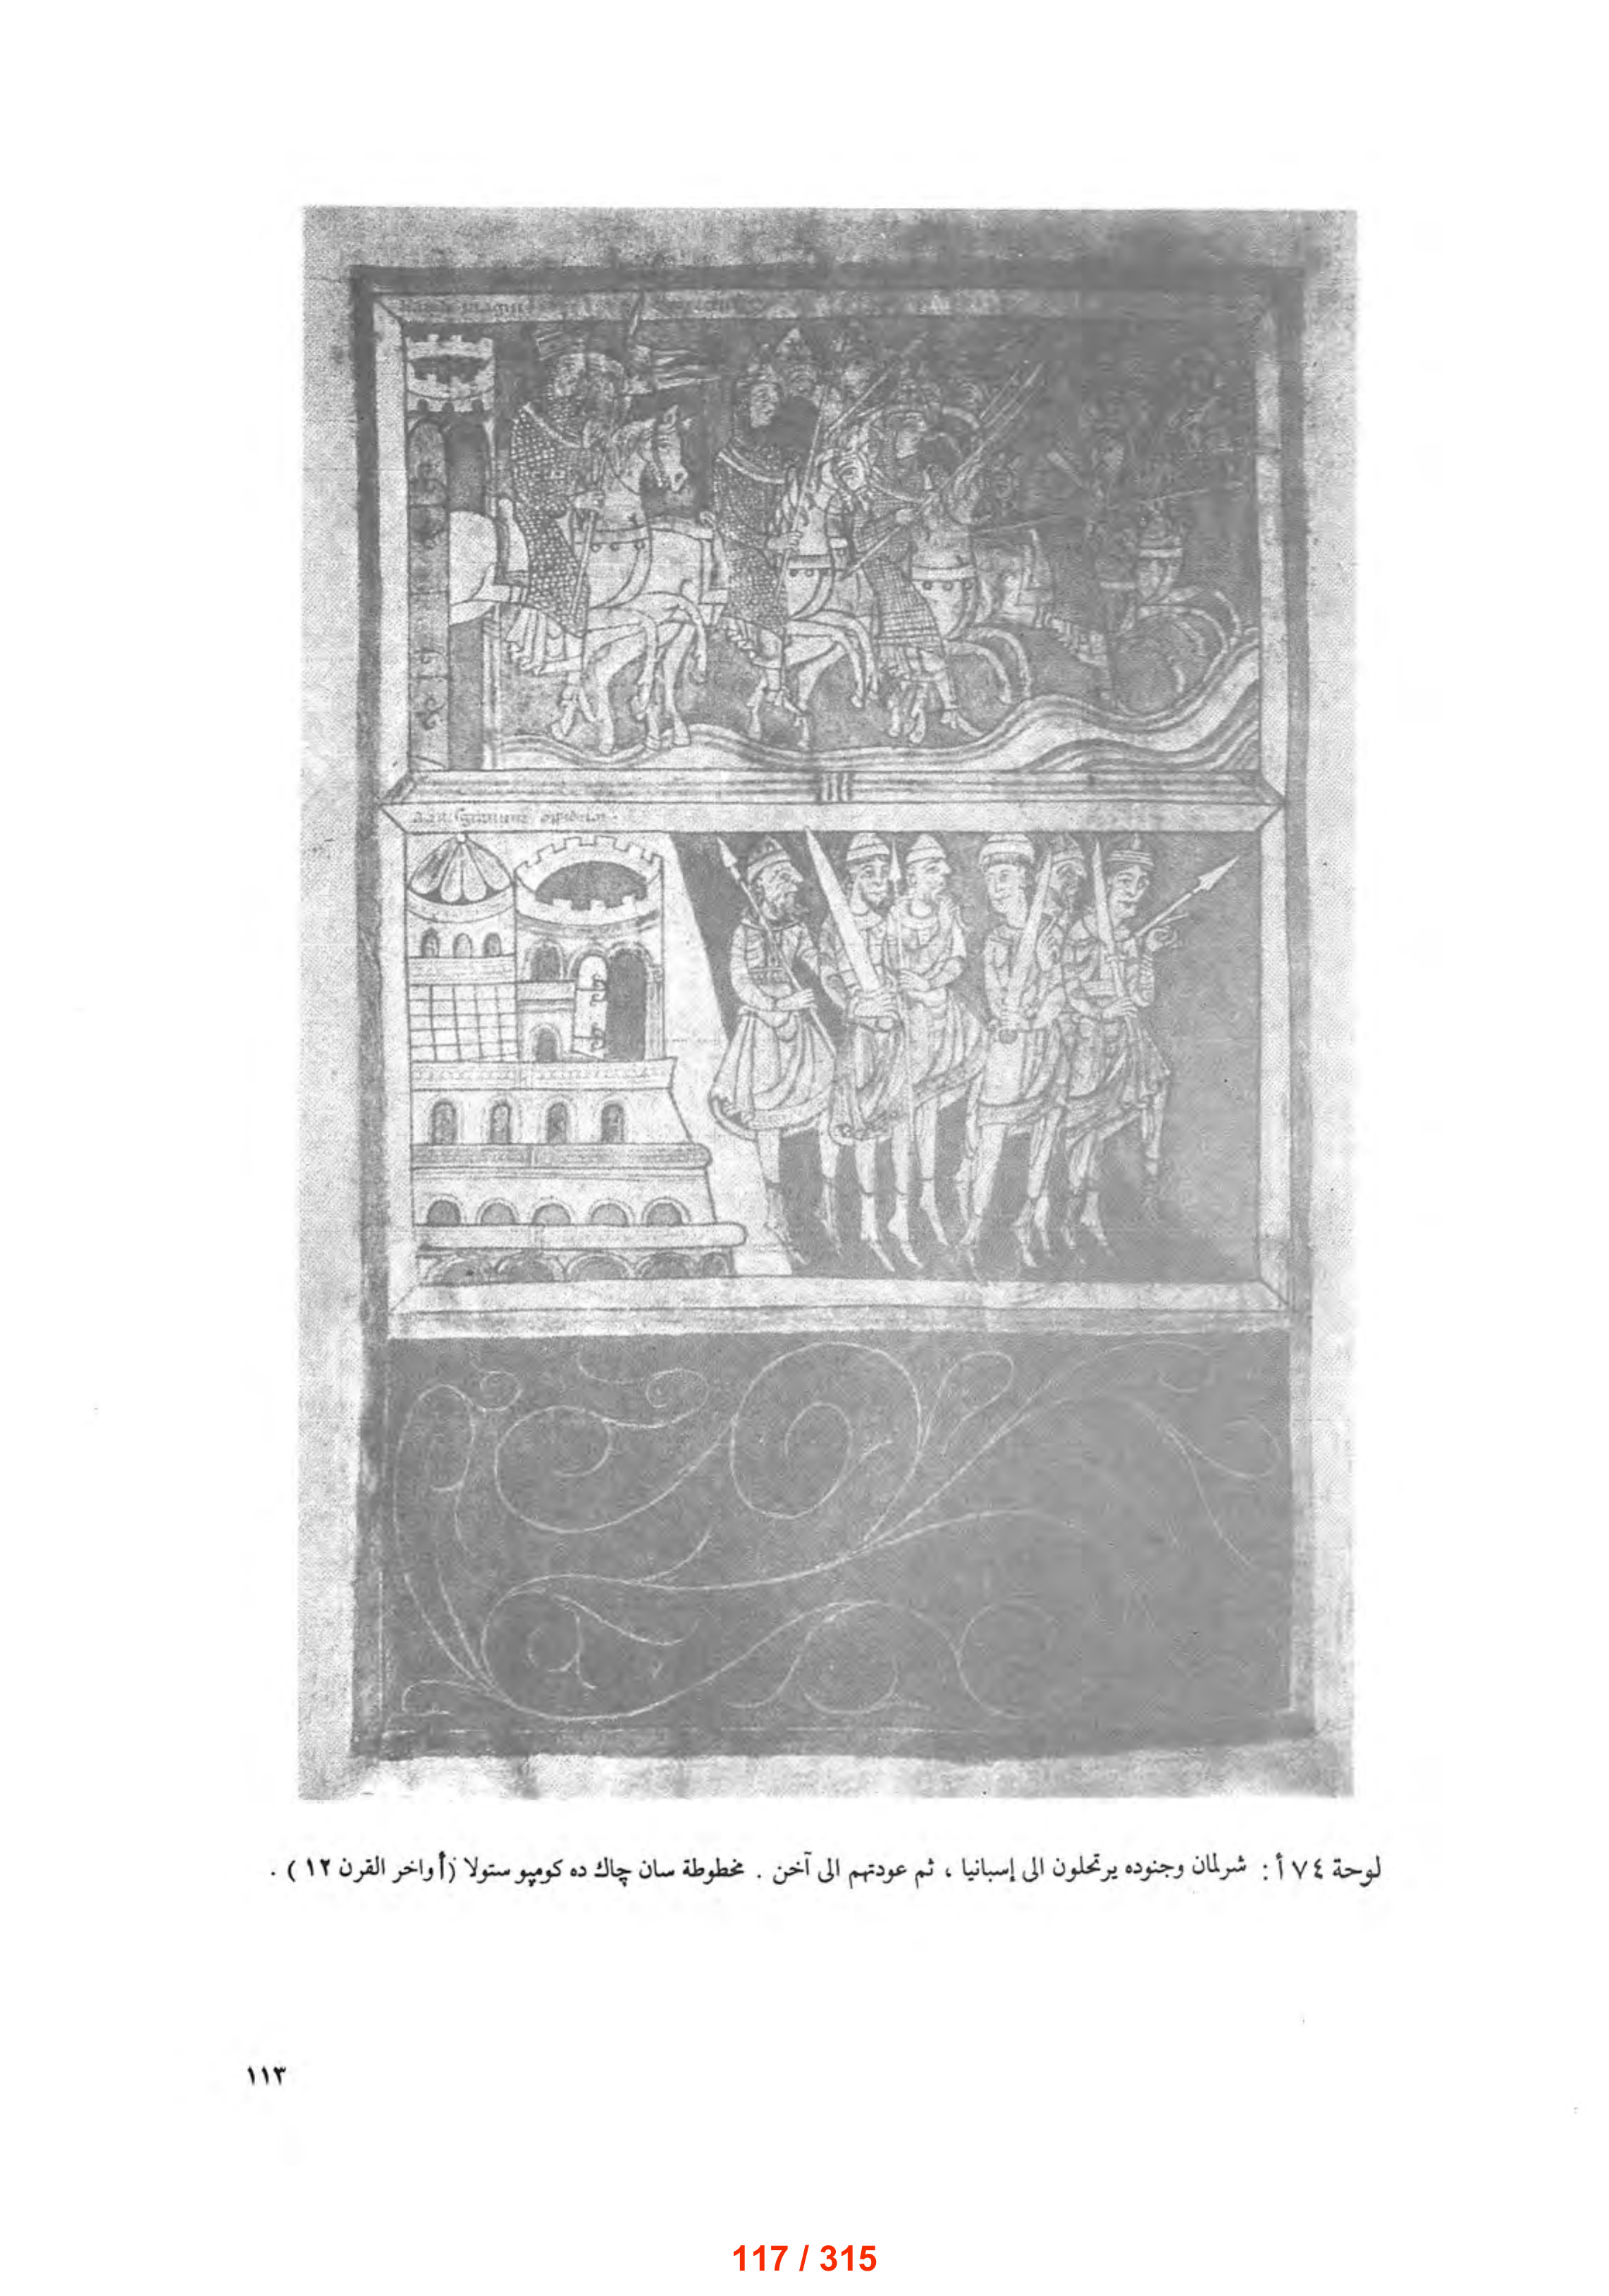 لوحة ٧٤ أ : شرلمان وجنوده يرتحلون الى إسبانيا ، ثم عودتهم الى آخن . مخطوطة سان چاك ده كومپو ستولا (أواخر القرن ١٢ ) .
١١٣
117 / 315